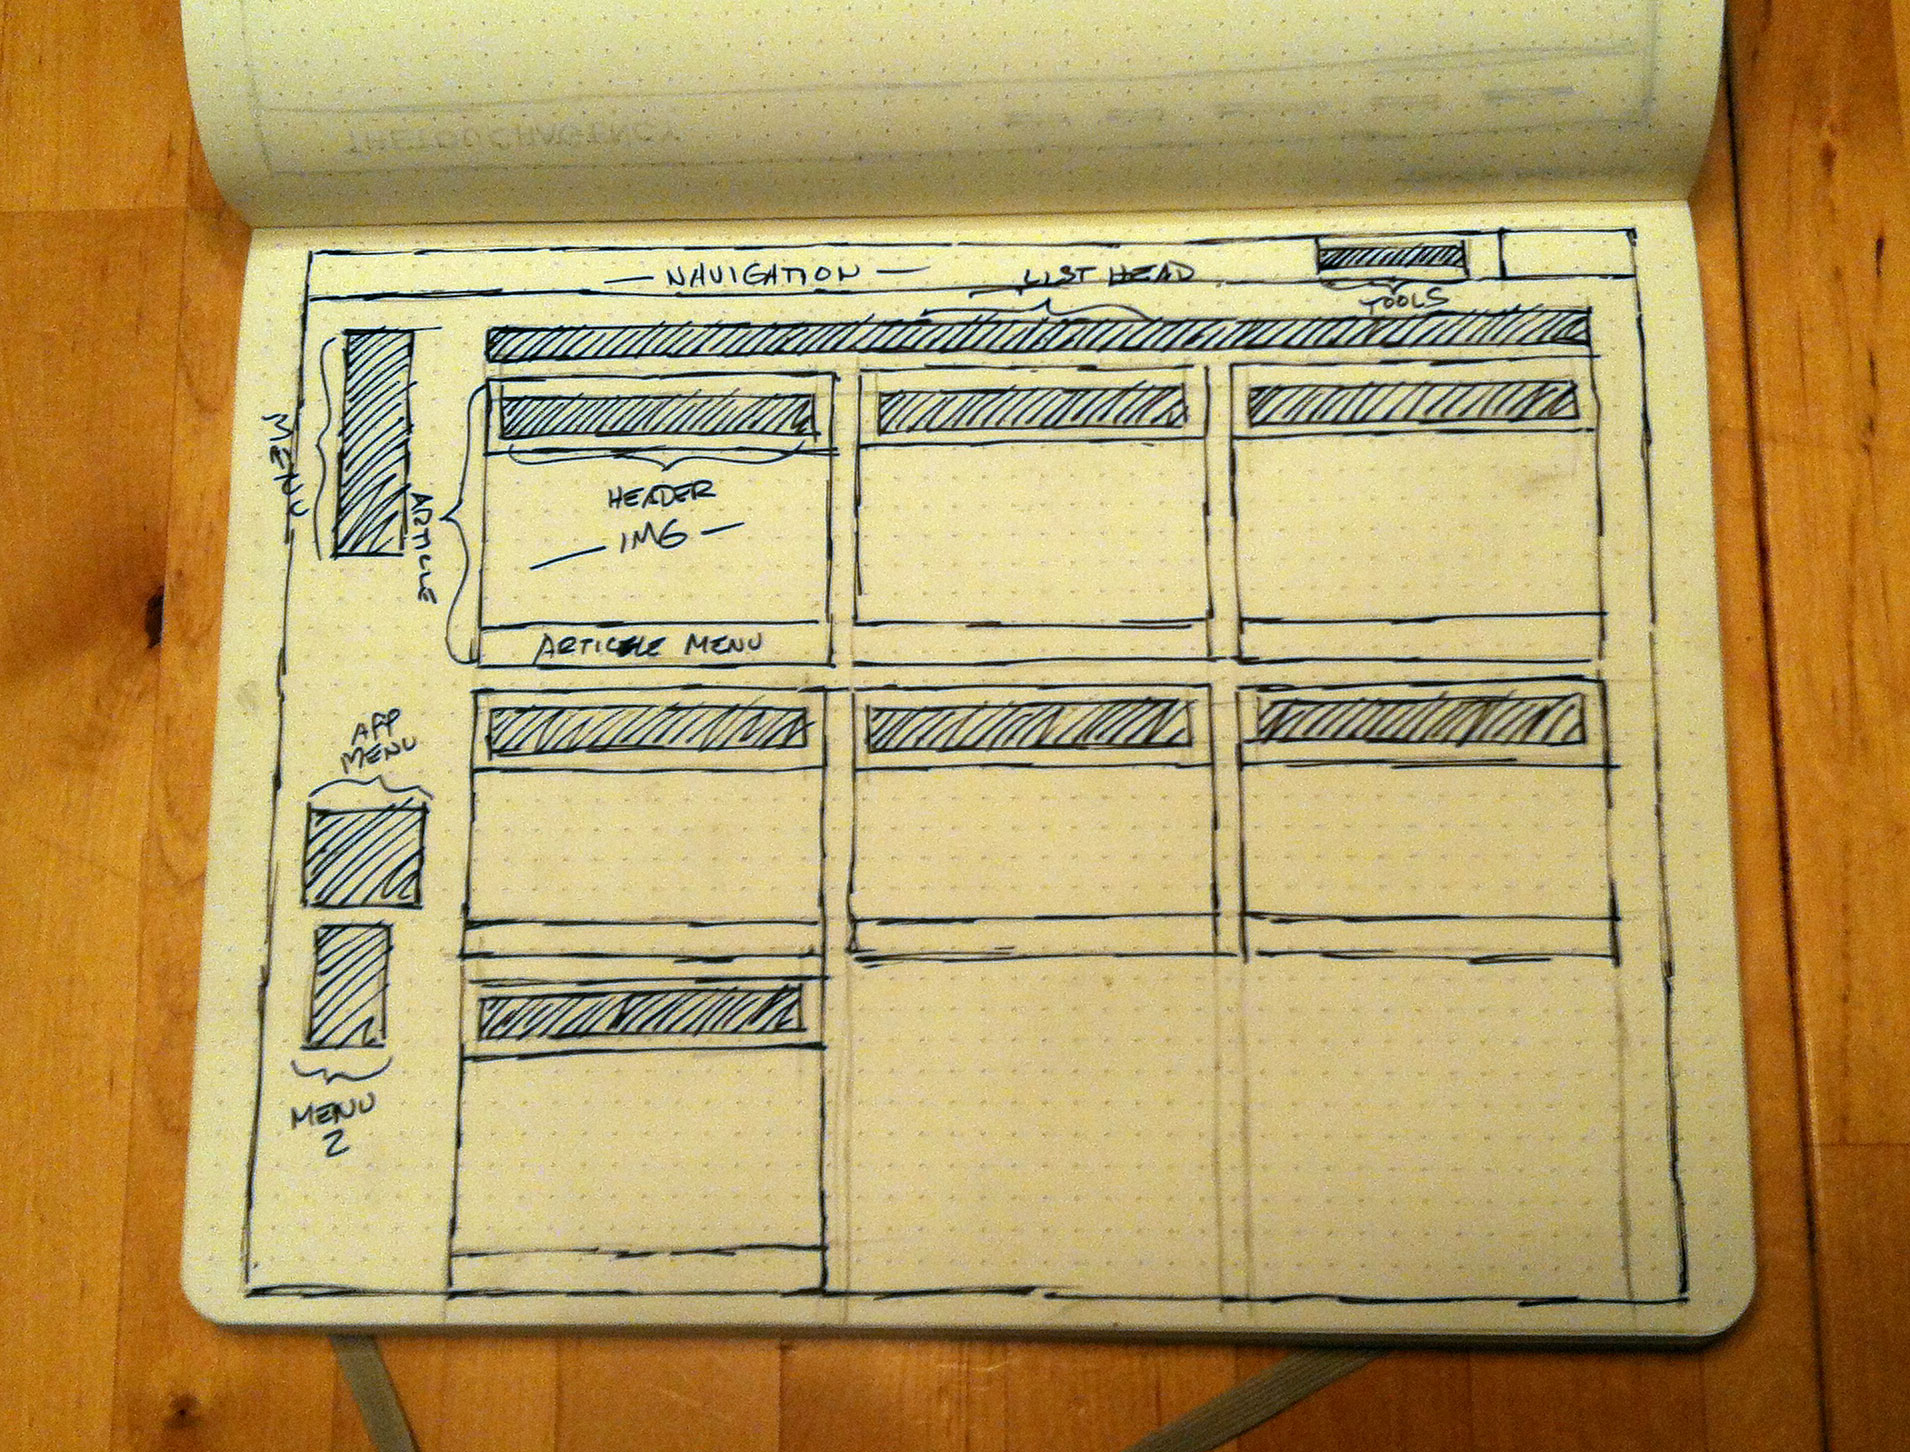 THETOUCHAGENCY
NAVIGATION
LIST HEAD
TOOLS
MENU
ARTICLE
HEADER
IMG
ARTICLE MENU
APP
MENU
MENU
2